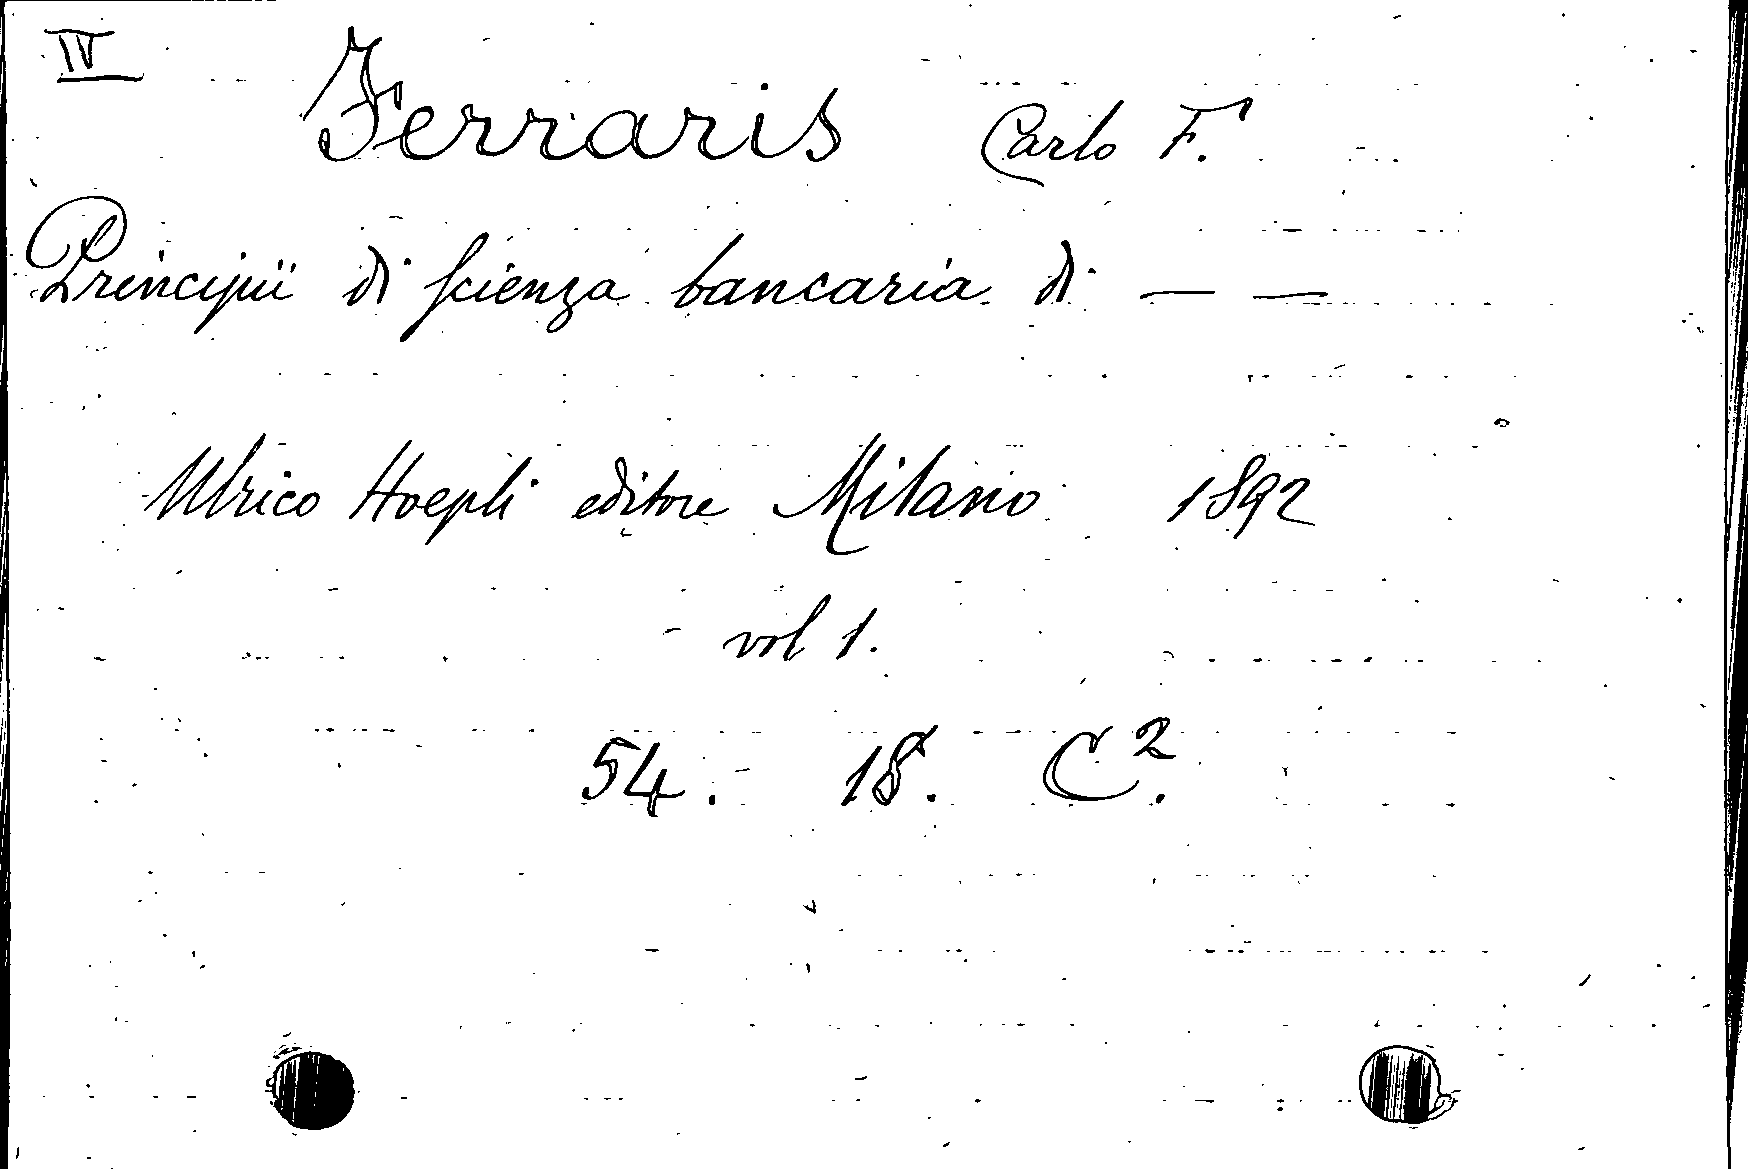 IV
Ferraris Carlo F.
Principii di scienza bancaria di — —
Ulrico Hoepli editore Milano 1892
vol 1.
54. 18. C².